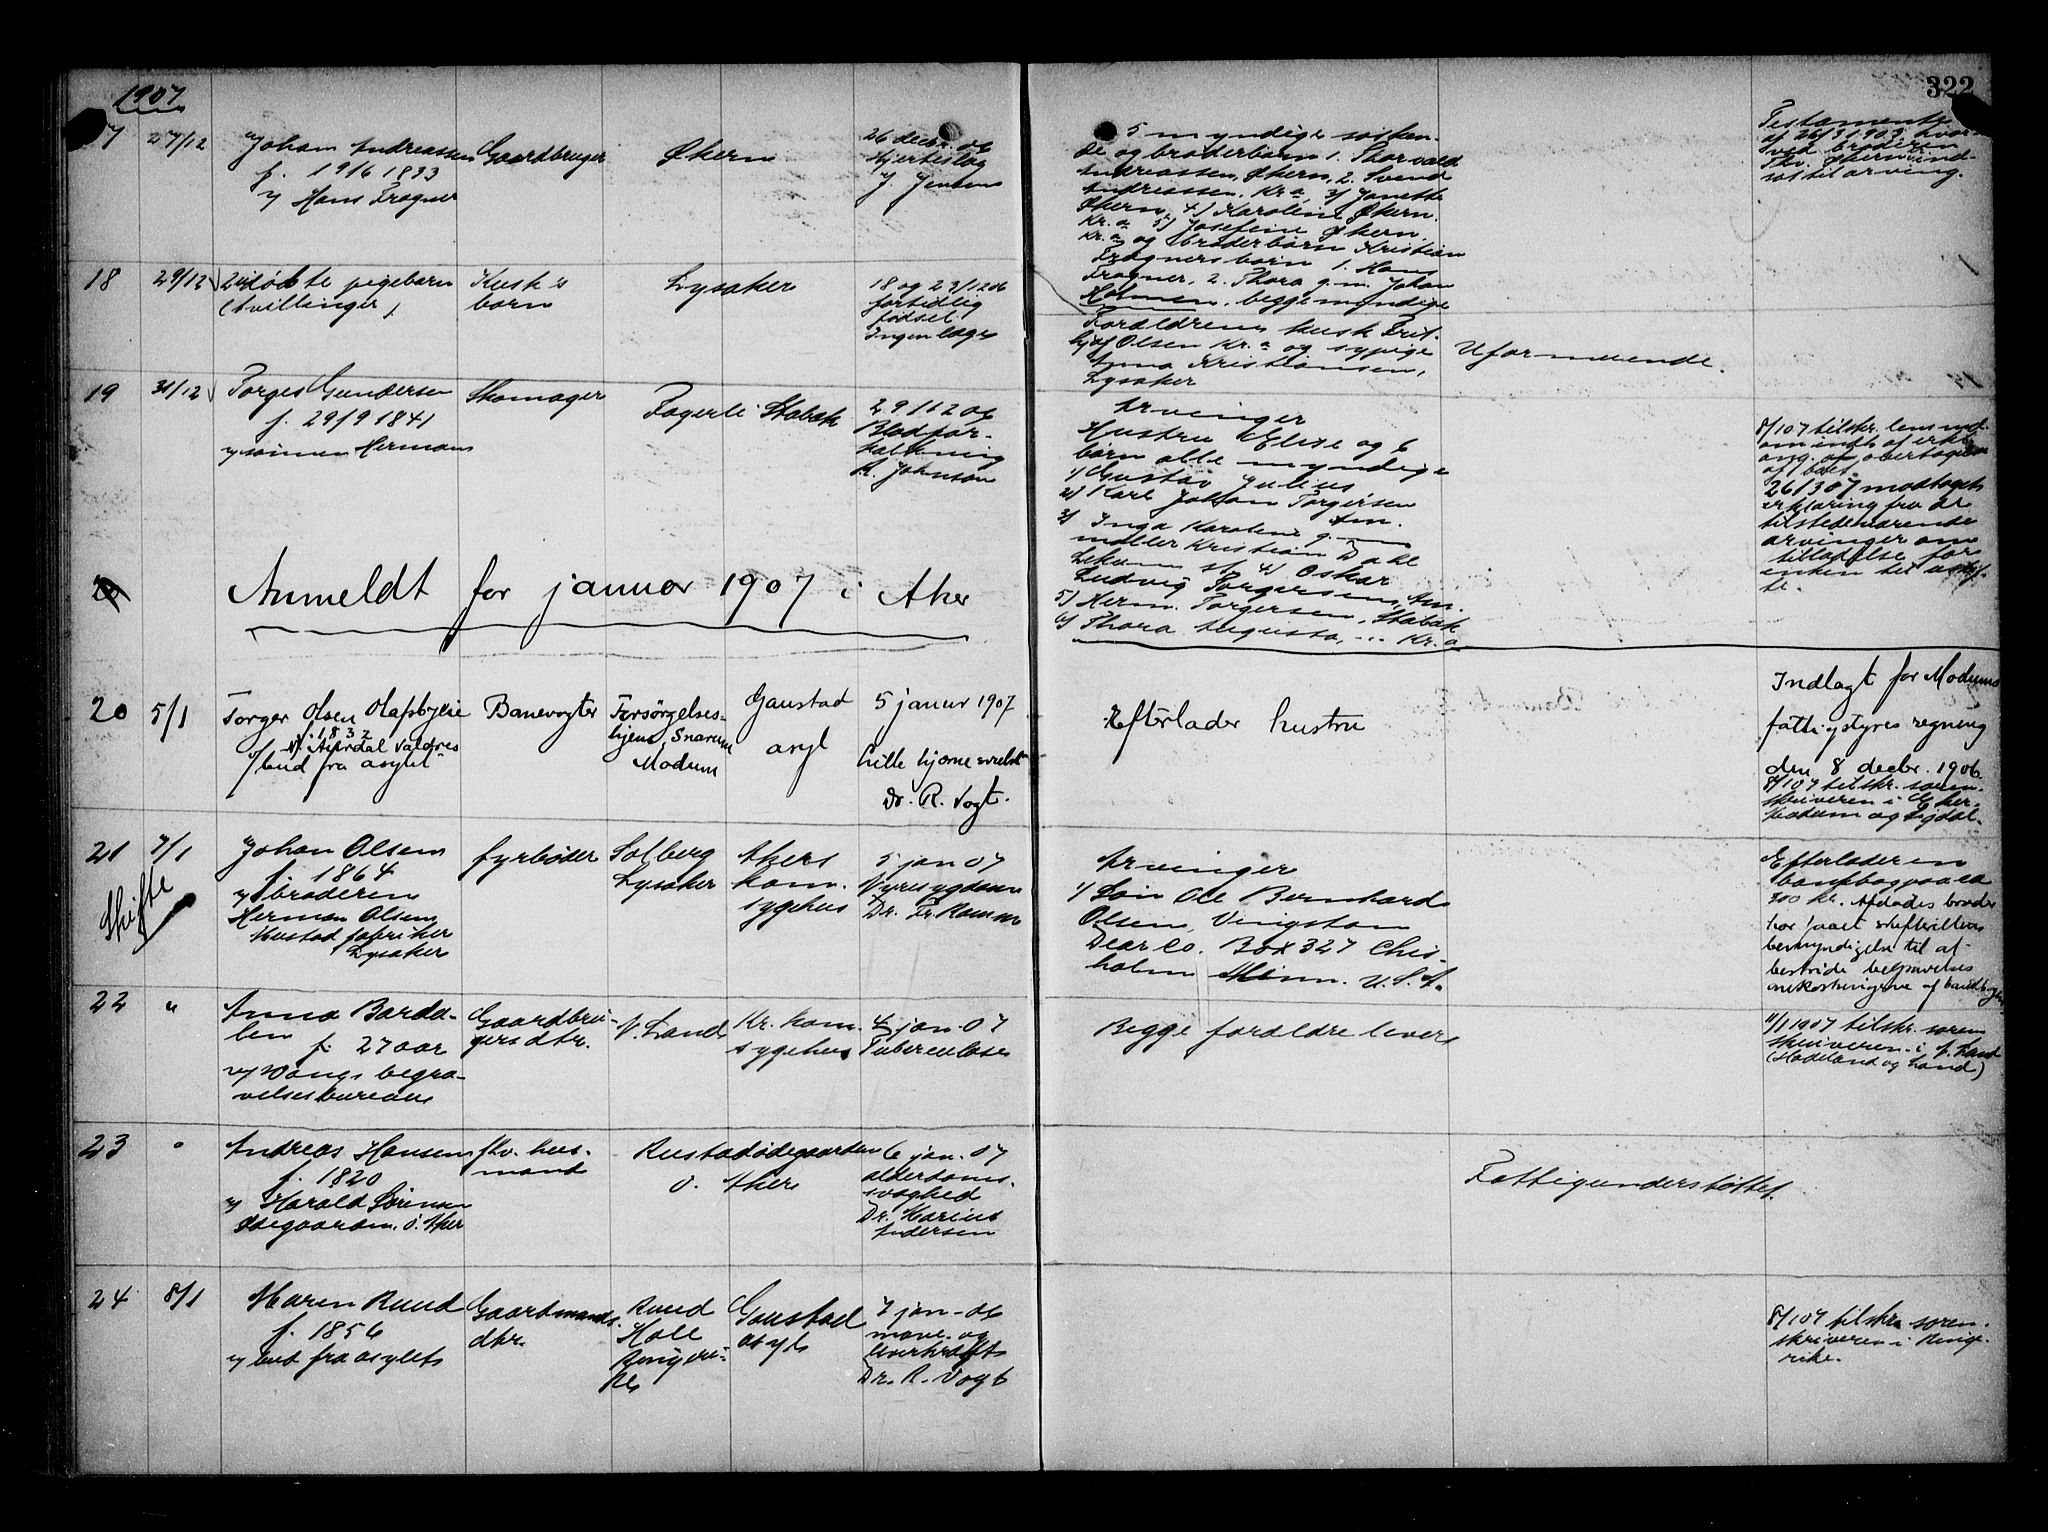 1907
322
7
27/12
Johan Andreassen
f. 19/6 1833
v/ Hans Fragner
Gaardbruger
Økern
26 decbr. 06
Hjerteslag
J. Jensen
5 myndige søsken-
de og broderbørn 1. Thorvald
Andreassen, Økern, 2. Svend
Andreassen, Kr.a, 3/ Janette
Økern, 4/ Karoline Økern.
Kr.a 5/ Josefine Økern,
Kr.a og broderbørn Kristian
Fragners børn 1. Hans
Fragner, 2. Thora g.m. Johan
Holmen, begge myndige
Testamente
af 26/3 1903, hvor-
ved broderen
Thv. Økern ind-
sat til arving.
18
29/12
2 udøbte pigebarn
(tvillinger)
Kusk's
børn
Lysaker
18 og 23/12 06
fortidlig
fødsel
Ingen læge
Forældrene kusk Frit-
hjof Olsen Kr.a og sypige
Anna Kristiansen,
Lysaker
Uformuende.
19
31/12
Torges Gundersen
f. 29/9 1841
v/ sønnen Herman
Skomager
Fagerli Stabæk
29/12 06
Blodfor-
kalkning
R. Johnson
Arvinger
Hustru Elise og 6
børn alle myndige
1/ Gustav Julius
2/ Karl Johan Torgersen
3/ Inga Karoline g.m.
møller Kristian Dahl
4/ Oskar
Ludvig Torgersen, Am.
5/ Herm. Torgersen, Stabæk
6/ Thora Augusta, -.. Kr.a
8/1 07 tilskr. lensmd.
om indh. af erkl.
ang. overtagelsen
af boet.
26/3 07 modtaget
erklæring fra de
tilstedeværende
arvinger om
tilladelse for
enken til uskif-
te.
20
Anmeldt for januar 1907 i Aker
20
5/1
Torger Olsen Olafsbyeie
f. 1832
N. Aurdal Valdres
v/ bud fra asylet
Banevogter
Forsørgelses-
hjem, Snarum
Modum
Gaustad
asyl
5 januar 1907
Dr. R. Vogt.
Efterlader hustru
Indlagt for Modums
fattigstyres regning
den 8 decbr. 1906
8/1 07 tilskr. soren-
skriveren i Eker,
Modum og Sigdal.
21
7/1
Skifte
Johan Olsen
f. 1864
v/ broderen
Herman Olsen
Mustad fabriker
Lysaker
fyrbøder
Solberg
Lysaker
Akers
kom.
sygehus
5 jan 07
Nyresygdom
Dr. Fr. Ramm
Arvinger
1/ Søn Ole Bernhard
Olsen, Vingston
Dear Co. Box 327 Chis-
holm Minn. U.S.A.
Efterlader en
bankbog paa ca
300 kr. Afdødes broder
har faaet skifterettens
bemyndigelse til at
bestride begravelses
omkostningerne af bankbogen
22
"
Anna Barda-
len f. 27 aar
v/ Vangs begra-
velsesbureau
Gaardbru-
gers dtr.
N. Land
Kr. kom.
sygehus
4 jan. 07
Tuberculose
Begge forældre lever
11/1 1907 tilskr. soren
skriveren i N. Land
(Hadeland og Land)
23
"
Andreas Hansen
f. 1820
v/ Harald Sørensen
Ødegaarden. ø. Aker
fhv. hus-
mand
Rustadødegaarden
ø. Aker
6 jan. 07
alderdoms-
svaghed
Dr. Marius
Andersen
Fattigunderstøttet.
24
8/1
Maren Ruud
f. 1856
v/ bud fra asylet
Gaardmands
dtr.
Ruud
Hole
Ringeri-
ke
Gaustad
asyl
7 jan. 06
mave- og
leverkræft
Dr. R. Vogt
8/1 07 tilskr. soren-
skriveren i Ringe-
rike.